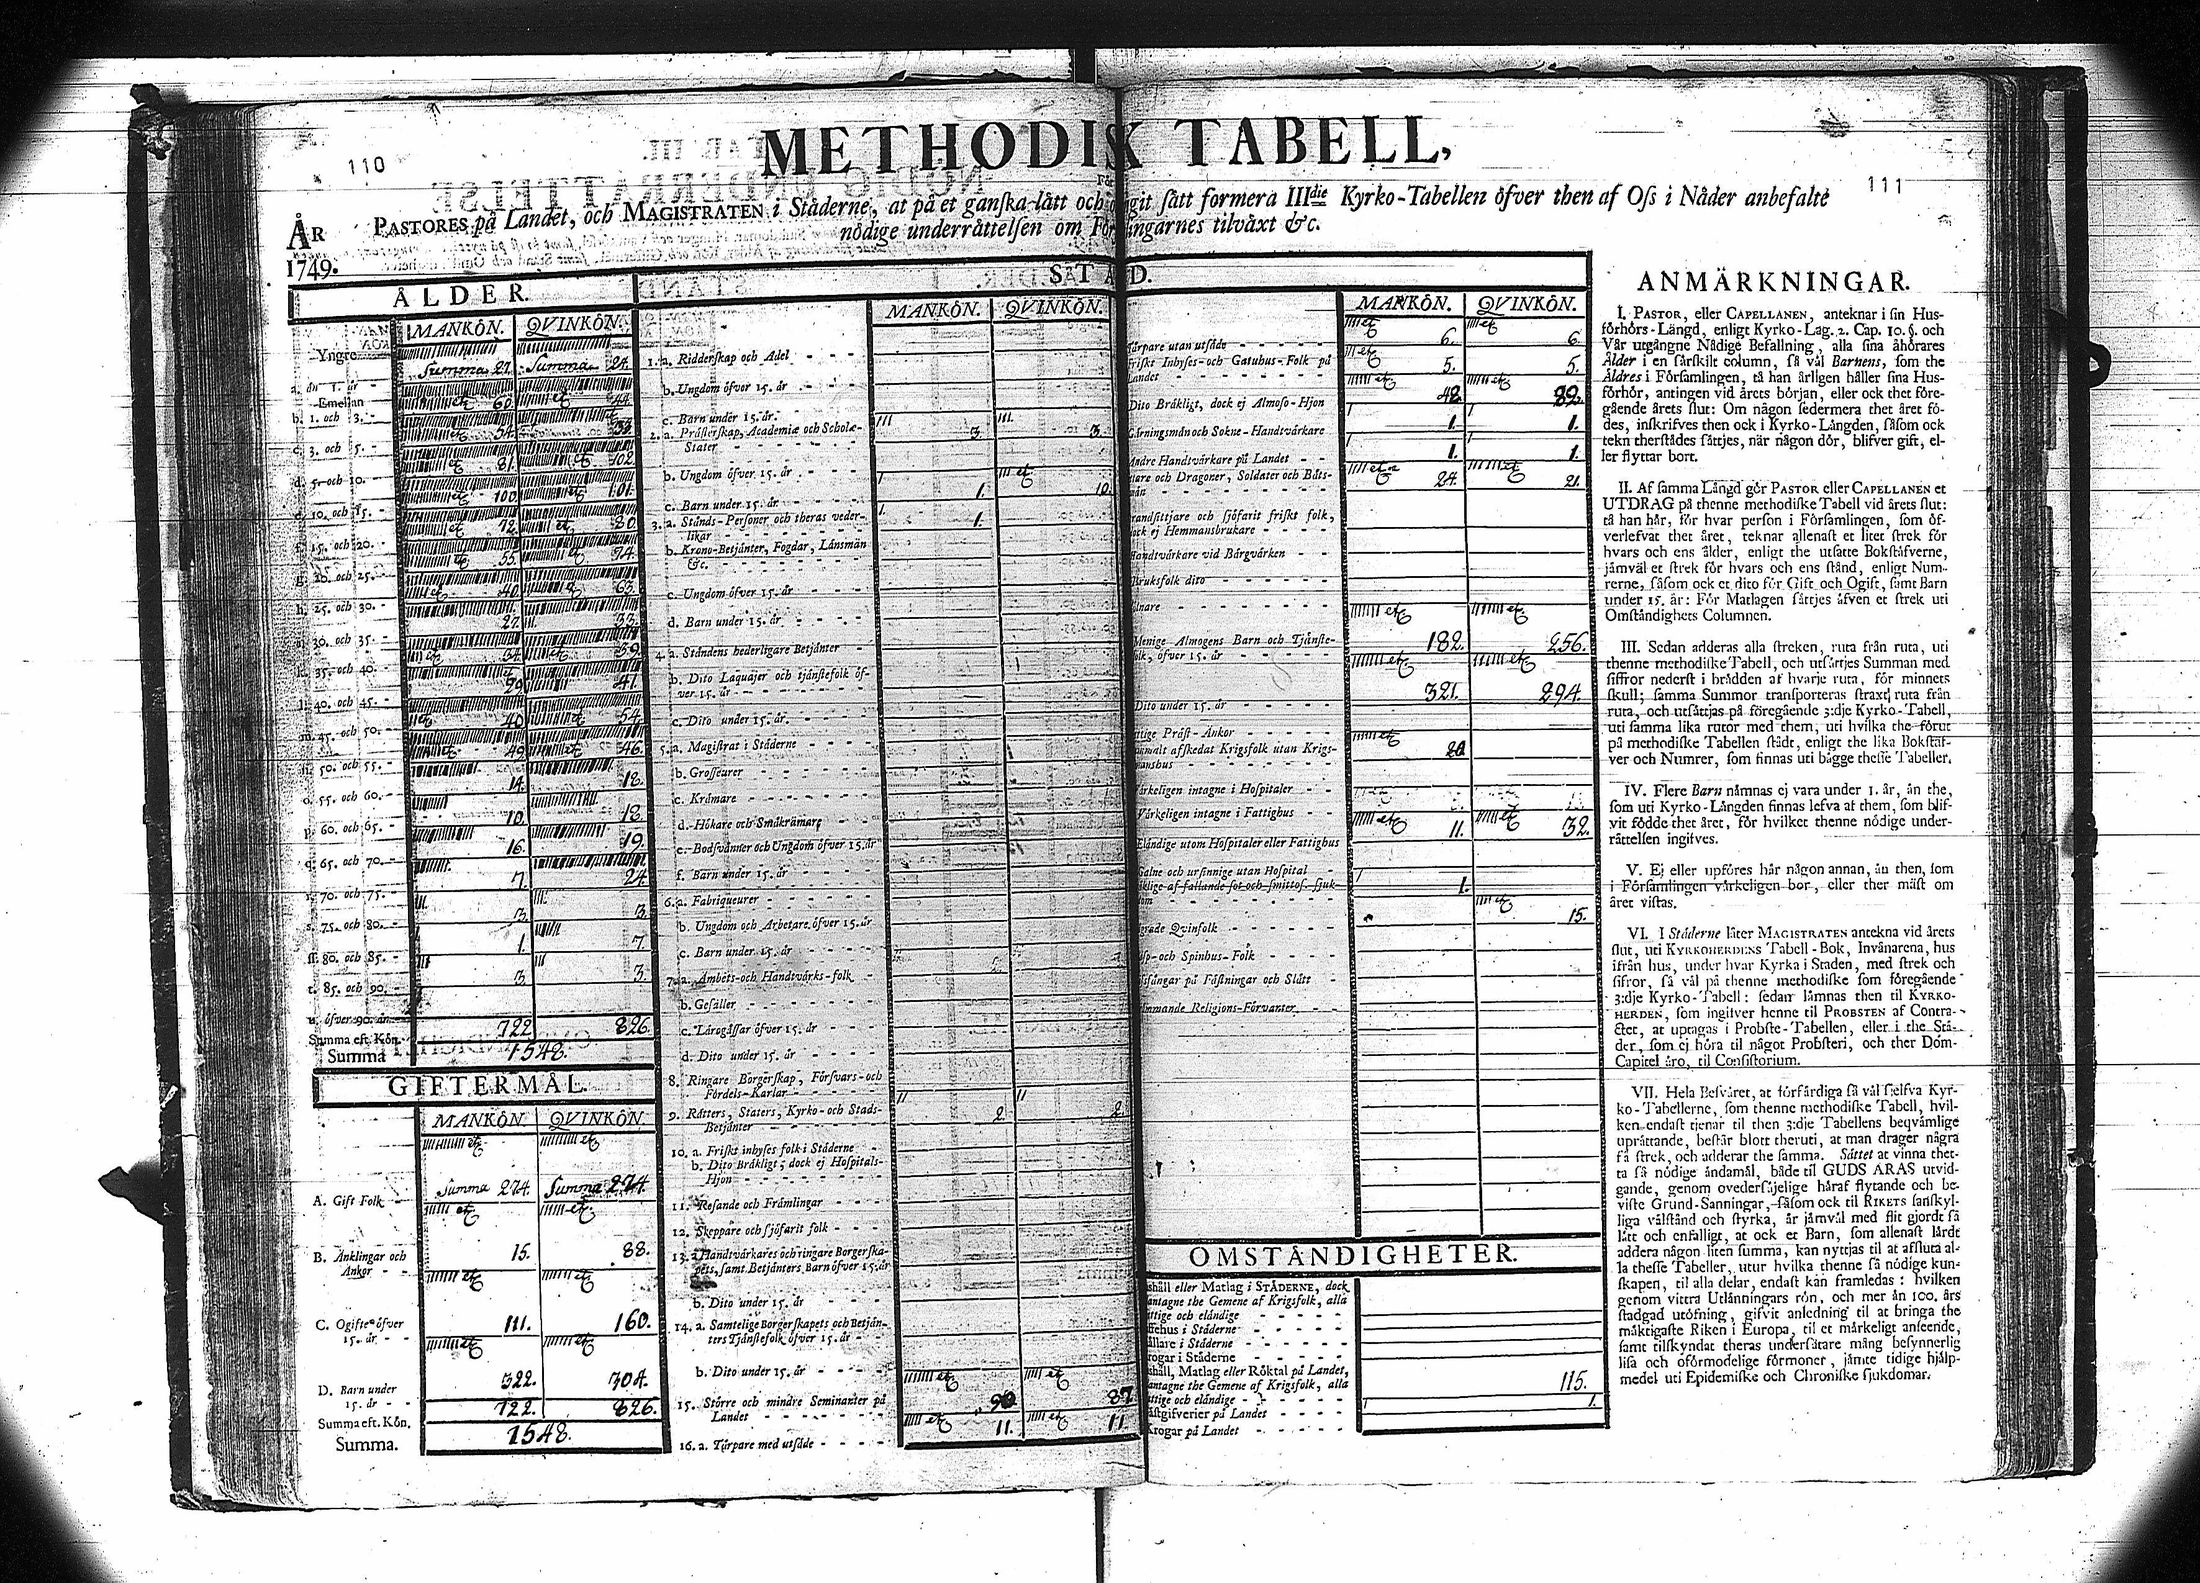 110
111
METHODISK TABELL,
PASTORES på Landet, och MAGISTRATEN i Ståderne, at på et ganska lått och sått formera IIIdie Kyrko-Tabellen öfver then af Oss i Nåder anbefalte
nödige underråttelsen om Församlingarnes tilvåxt &c.
ÅR
1749.
ÅLDER.
MANKÖN. QVINKÖN.
Yngre Summa 21. Summa 24.
a. än 1. år
Emellan
b. 1. och 3. 60. 44.
c. 3. och 5. 54.
d. 5. och 10. 81. 102.
e. 10. och 15. 100. 101.
f. 15. och 20. 72. 80.
g. 20. och 25. 55. 74.
h. 25. och 30. 40. 63.
i. 30. och 35. 27. 33.
k. 35. och 40. 34. 59.
l. 40. och 45. 41.
m. 45. och 50. 40. 54.
n. 50. och 55. 49. 46.
o. 55. och 60. 14. 18.
p. 60. och 65. 10. 18.
q. 65. och 70. 16. 19.
r. 70. och 75. 7. 24.
s. 75. och 80. 3. 3.
ff. 80. och 85. 1. 7.
t. 85. och 90. 3. 3.
u. öfver 90. år
Summa eft. Kön. 722. 826.
Summa 1548.
GIFTERMÅL.
MANKÖN. QVINKÖN.
A. Gift Folk Summa 274. Summa 274.
B. Änklingar och
Änkor 15. 88.
C. Ogifte öfver
15. år 111. 160.
D. Barn under
15. år 322. 304.
Summa eft. Kön. 722. 826.
Summa. 1548.
STÅND.
MANKÖN. QVINKÖN.
1. a. Ridderskap och Adel
b. Ungdom öfver 15. år
c. Barn under 15. år.
2. a. Pråsterskap, Academiæ och Scholæ-
Stater 3. 3.
b. Ungdom öfver 15. år 1. 10.
c. Barn under 15. år 1.
3. a. Stånds-Personer och theras veder-
likar
b. Krono-Betjänter, Fogdar, Länsmän
&c.
c. Ungdom öfver 15. år
d. Barn under 15. år
4. a. Ståndens hederligare Betjänter
b. Dito Laquajer och tjänstefolk öf-
ver 15. år
c. Dito under 15. år.
5. a. Magistrat i Ståderne
b. Grosseurer
c. Krämare
d. Hökare och Småkrämare
e. Bodsvänner och Ungdom öfver 15. år
f. Barn under 15. år
6. a. Fabriqueurer
b. Ungdom och Arbetare öfver 15. år
c. Barn under 15. år
7. a. Ämbets- och Handtvårks-folk
b. Gesäller
c. Lärogåssar öfver 15. år
d. Dito under 15. år
8. Ringare Borgerskap, Försvars- och
Fördels-Karlar
9. Råtters, Staters, Kyrko- och Stads-
Betjänter 2. 2.
10. a. Friskt inhyses folk i Ståderne
b. Dito Bråkligt, dock ej Hospitals-
Hjon
11. Resande och Främlingar
12. Skeppare och sjöfarit folk
13. a. Handtvårkares och ringare Borgerska-
pets, samt Betjänters Barn öfver 15. år
b. Dito under 15. år
14. a. Samtelige Borgerskapets och Betjän-
ters Tjänstefolk öfver 15. år
b. Dito under 15. år
15. Större och mindre Seminarier på
Landet 90. 87.
16. a. Tårpare med utsäde 11. 11.
MANKÖN. QVINKÖN.
Tårpare utan utsäde 6. 6.
Friskt Inhyses- och Gatuhus-Folk på
Landet 5. 5.
Dito Bråkligt, dock ej Almoso-Hjon 48.
Gårningsmän och Sokne-Handtvårkare 1. 1.
Andre Handtvårkare på Landet 1. 1.
och Dragoner, Soldater och Båts-
män 24. 21.
Strandsittjare och sjöfarit friskt folk,
dock ej Hemmansbrukare
Handtvårkare vid Bärgvårken
Bruksfolk dito
Menige Almogens Barn och Tjänste-
folk, öfver 15. år 182. 256.
Dito under 15. år 321. 294.
Präst-Änkor
afskedat Krigsfolk utan Krigs-
manshus
Vårkeligen intagne i Hospitaler
Vårkeligen intagne i Fattighus
Elåndige utom Hospitaler eller Fattighus 11. 32.
Galne och ursinnige utan Hospital
af fallande sot och smittos. sjuk-
dom 1.
Qvinfolk 15.
och Spinhus-Folk
på Fåstningar och Slått
Religions-Förvanter
OMSTÅNDIGHETER.
eller Matlag i STÅDERNE, dock
the Gemene af Krigsfolk, alla
och elåndige
i Ståderne
i Ståderne
Krogar i Ståderne
Matlag eller Röktal på Landet,
the Gemene af Krigsfolk, alla
och elåndige 115.
Gästgifverier på Landet 1.
Krogar på Landet
ANMÄRKNINGAR.
I. PASTOR, eller CAPELLANEN, anteknar i sin Hus-
förhörs-Längd, enligt Kyrko-Lag. 2. Cap. 10. §. och
Vår utgångne Nådige Befallning, alla sina åhörares
Ålder i en sårskilt column, så väl Barnens, som the
Äldres i Församlingen, tå han årligen håller sina Hus-
förhör, antingen vid årets början, eller ock thet före-
gående årets slut: Om någon sedermera thet året fö-
des, inskrifves then ock i Kyrko-Långden, såsom ock
tekn therstådes såttjes, när någon dör, blifver gift, el-
ler flyttar bort.
II. Af samma Långd gör PASTOR eller CAPELLANEN et
UTDRAG på thenne methodiske Tabell vid årets slut:
tå han hår, för hvar person i Församlingen, som öf-
verlefvat thet året, teknar allenast et litet strek för
hvars och ens ålder, enligt the utsatte Bokstäfverne,
jämväl et strek för hvars och ens stånd, enligt Num-
rerne, såsom ock et dito för Gift och Ogift, samt Barn
under 15. år: För Matlagen såttjes åfven et strek uti
Omståndighets Columnen.
III. Sedan adderas alla streken, ruta från ruta, uti
thenne methodiske Tabell, och utsåttjes Summan med
siffror nederst i brådden af hvarje ruta, för minnets
skull; samma Summor transporteras straxt ruta från
ruta, och utsåttjas på föregående 3:dje Kyrko-Tabell,
uti samma lika rutor med them, uti hvilka the förut
på methodiske Tabellen stådt, enligt the lika Bokstäf-
ver och Numrer, som finnas uti bågge thesse Tabeller.
IV. Flere Barn nåmnas ej vara under 1. år, än the,
som uti Kyrko-Långden finnas lefva af them, som blif-
vit födde thet året, för hvilket thenne nödige under-
råttelsen ingifves.
V. Ej eller upföres hår någon annan, än then, som
i Församlingen vårkeligen bor, eller ther måst om
året vistas.
VI. I Ståderne låter MAGISTRATEN antekna vid årets
slut, uti KYRKOHERDENS Tabell-Bok, Invånarena, hus
ifrån hus, under hvar Kyrka i Staden, med strek och
sifror, så väl på thenne methodiske som föregående
3:dje Kyrko-Tabell: sedan lämnas then til KYRKO-
HERDEN, som ingifver henne til PROBSTEN af Contra-
ctet, at uptagas i Probste-Tabellen, eller i the Stå-
der, som ej höra til något Probsteri, och ther Dom-
Capitel äro, til Consistorium.
VII. Hela Besväret, at förfärdiga så väl sjelfva Kyr-
ko-Tabellerne, som thenne methodiske Tabell, hvil-
ken endast tjenar til then 3:dje Tabellens beqvämlige
upråttande, består blott theruti, at man drager några
få strek, och adderar the samma. Såttet at vinna thet-
ta så nödige åndamål, både til GUDS ÄRAS utvid-
gande, genom ovedersäjelige häraf flytande och be-
viste Grund-Sanningar, såsom ock til RIKETS sanskyl-
liga välstånd och styrka, är jämväl med flit gjordt så
lått och enfalligt, at ock et Barn, som allenast lårdt
addera någon liten summa, kan nyttjas til at afsluta al-
la thesse Tabeller, utur hvilka thenne så nödige kun-
skapen, til alla delar, endast kan framledas: hvilken
genom vittra Utlånningars rön, och mer än 100. års
stadgad utöfning, gifvit anledning til at bringa the
måktigaste Riken i Europa, til et märkeligt anseende,
samt tilskyndat theras undersåtare mång besynnerlig
lisa och oförmodelige förmoner, jämte tidige hjälp-
medel uti Epidemiske och Chroniske sjukdomar.